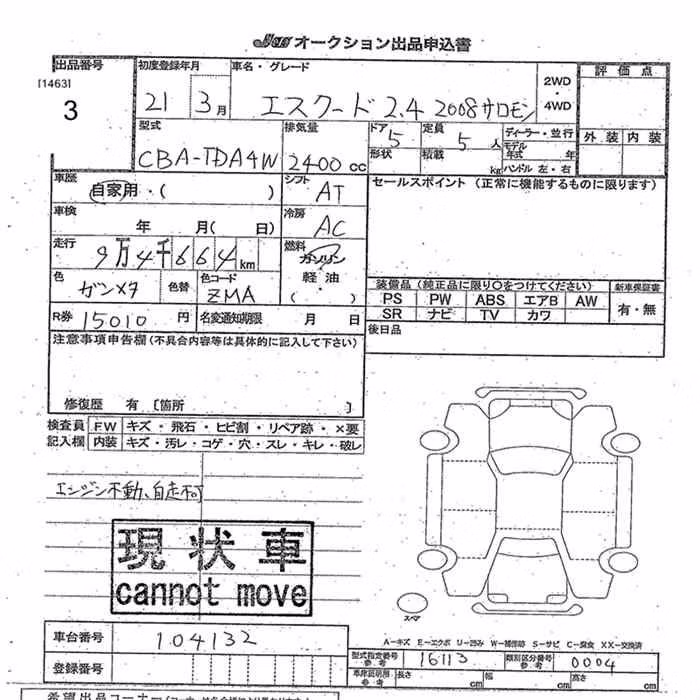 JAA オークション出品申込書
出品番号 初度登録年月 車名・グレード 評価点
[1463]
3 21 3月 エスクード 2.4 2008サロモン 2WD ・ 4WD
型式 排気量 ドア 定員 ディーラー・並行 外装 内装
CBA-TDA4W 2400cc 5 5人 モデル年式 年
形状 積載 kg ハンドル 左・右
車歴 シフト セールスポイント (正常に機能するものに限ります)
自家用・( ) AT
車検 冷房
年 月( 日) AC
走行 燃料
9万4千664km ガソリン
軽油
・
( )
色 色替 色コード 装備品 (純正品に限り○をつけてください) 新車保証書
ガンメタ ZMA PS PW ABS エアB AW 有・無
SR ナビ TV カワ
R券 15010円 名変通知期限 月 日 後日品
注意事項申告欄 (不具合内容等は具体的に記入して下さい)
修復歴 有 [箇所 ]
検査員 FW キズ・飛石・ヒビ割・リペア跡・×要
記入欄 内装 キズ・汚レ・コゲ・穴・スレ・キレ・破レ
エンジン不動、自走不可
現状車
cannot move
スペア
A-キズ E-エクボ U-凹み W-補修跡 S-サビ C-腐食 XX-交換済
車台番号 104132 型式指定番号 参考 16113 類別区分番号 参考 0004
登録番号 長さ cm 幅 cm 高さ cm
希望出品コーナー